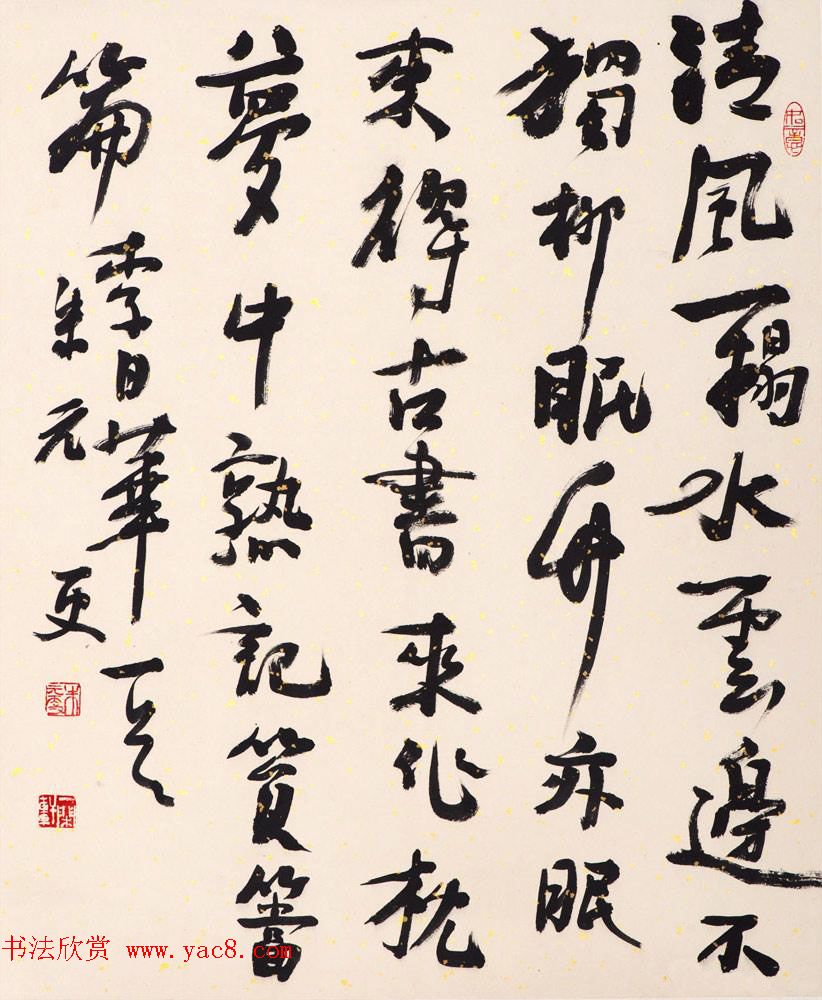 清風一榻水雲邊不
獨柳眠竹亦眠
束得古書來作枕
夢中熟記篔簹
篇 李日華
朱元更
书法欣赏 www.yac8.com